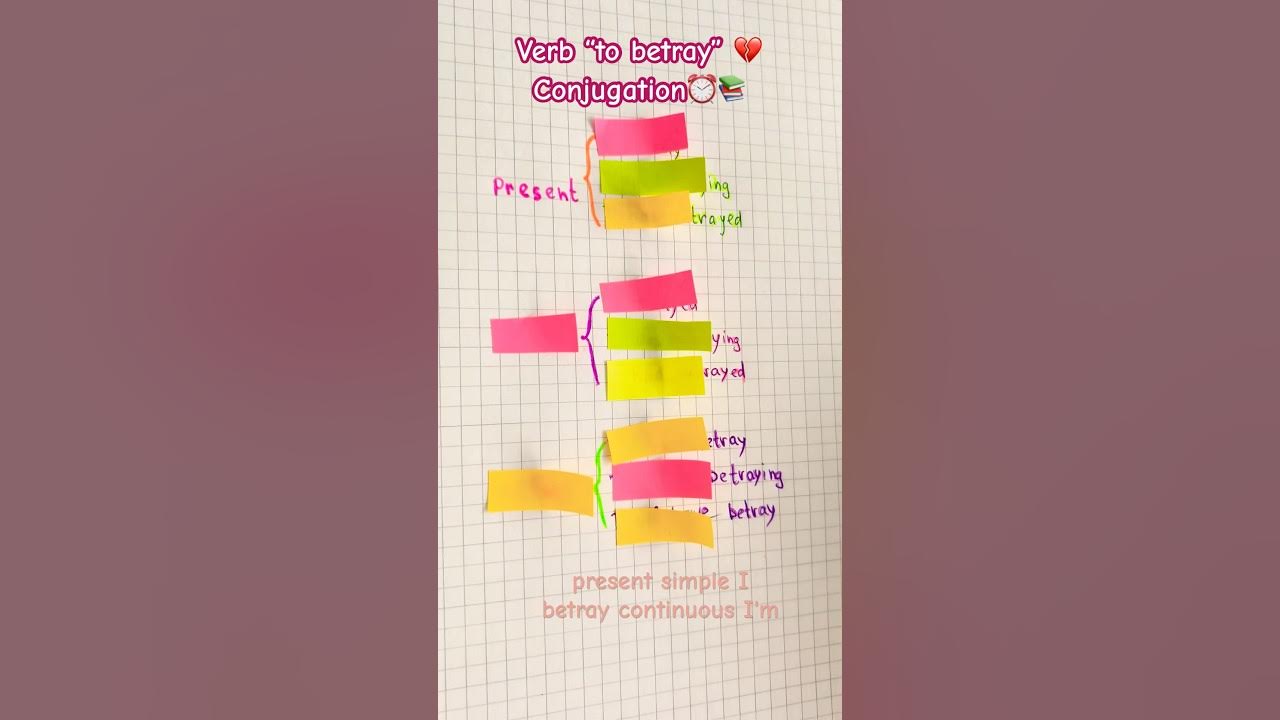 Verb “to betray” 💔
Conjugation⏰📚
Present
ying
trayed
yed
ying
rayed
etray
betraying
betray
present simple I
betray continuous I'm